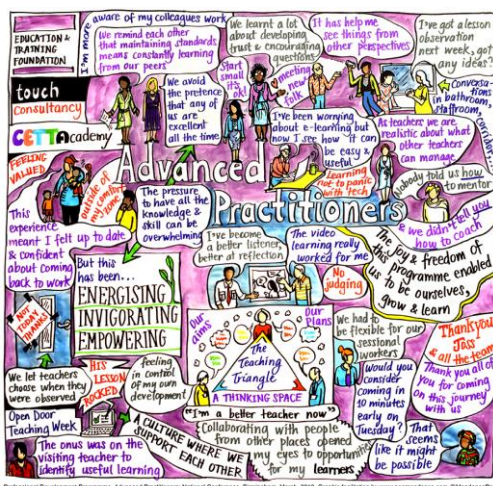 EDUCATION &
TRAINING
FOUNDATION
touch
Consultancy
CETTAcademy
I'm more aware of my colleagues work
We remind each other
that maintaining standards
means constantly learning
from our peers
We avoid
the pretence
that any of
us are
excellent
all the time
We learnt a lot
about developing
trust & encouraging
questions
Start
small
it's
ok!
meeting
new
folk
It has help me
see things from
other perspectives
I've got a lesson
observation
next week, got
any ideas?
Conversa-
tions
in bathroom,
staffroom,
corridor
I've been worrying
about e-learning but
now I see how it can
be easy &
useful
As teachers we are
realistic about what
other teachers
can manage
Learning
not to panic
with tech
Nobody told us how
to mentor
& we didn't tell you
how to coach
FEELING
VALUED
outside of
my comfort
zone
Advanced
Practitioners
This
experience
meant I felt up to date
& confident
about coming
back to work
The pressure
to have all the
knowledge &
skill can be
overwhelming
But this
has been...
ENERGISING
INVIGORATING
EMPOWERING
I've become
a better listener,
better at reflection
The video
learning really
worked for me
No
judging
The joy & freedom of
this programme enabled
us to be ourselves,
grow & learn
NOT
TODAY
THANKS
We let teachers
choose when they
were observed
HIS
LESSON
ROCKED
feeling
in control
of my own
development
Our
aims
Our
plans
The
Teaching
Triangle
A THINKING SPACE
"I'm a better teacher now"
We had to
be flexible for our
sessional
workers
Would you
consider
coming in
10 minutes
early on
Tuesday?
That
seems
like it might
be possible
Thank you
Joss
& all the team
Thank you all of
you for coming
on this journey
with us
Open Door
Teaching Week
The onus was on the
visiting teacher to
identify useful learning
A CULTURE WHERE WE
SUPPORT EACH OTHER
Collaborating with people
from other places opened
my eyes to opportunities
for my learners